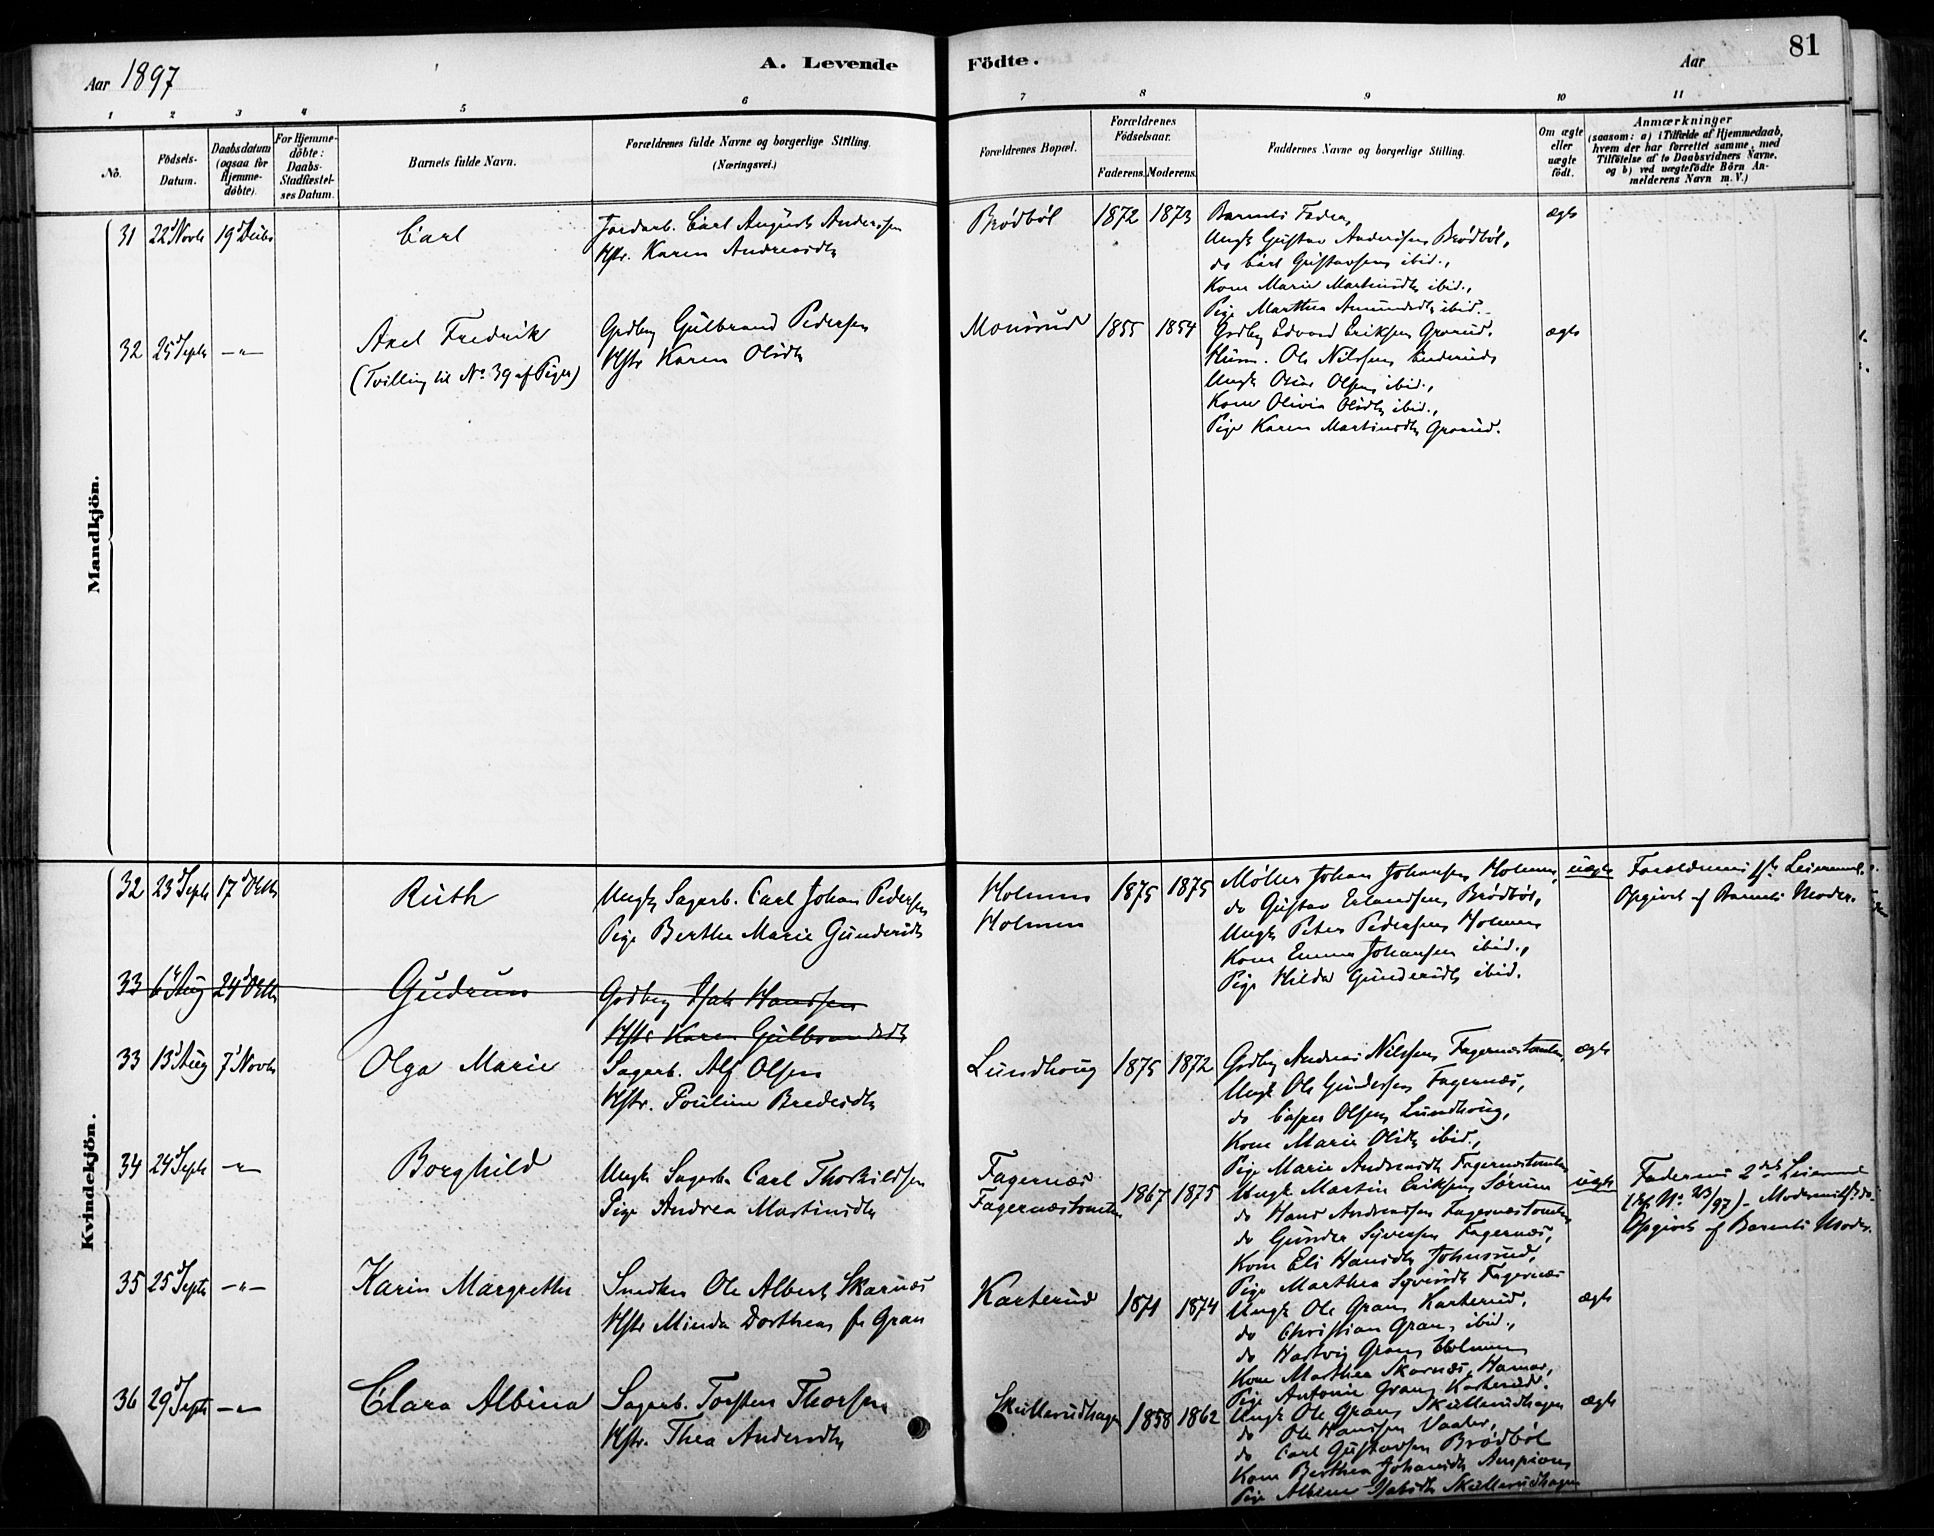 Aar 1897
A. Levende Födte.
Aar
81
1 2 3 4 5 6 7 8 9 10 11
No.
Födsels-Datum.
Daabsdatum (ogsaa for Hjemme-döbte).
For Hjemme-döbte: Daabs-Stadfæstel-ses Datum.
Barnets fulde Navn.
Forældrenes fulde Navne og borgerlige Stilling. (Næringsvei.)
Forældrenes Bopæl.
Forældrenes Födselsaar.
Faderens. Moderens.
Faddernes Navne og borgerlige Stilling.
Om ægte eller uægte födt.
Anmærkninger
(saasom: a) i Tilfælde af Hjemmedaab, hvem der har forrettet samme, med Tilföielse af to Daabsvidners Navne, og b) ved uægtefödte Börn Anmelderens Navn m. V.)
Mandkjön.
31 22d Novb 19d Decbr Carl
Jordarb. Carl August Anderssen
Hstr. Karen Andreasdtr
Brødbøl 1872 1873
Barnets Fader,
Ungk Gustav Anderssen Brødbøl,
do Carl Gustavsen ibid.,
Kone Marie Martinsdtr ibid.,
Pige Marthea Amundsdtr ibid.
ægte
32 25d Septb —"— Axel Fredrik
(Tvilling til No 39 af Piger)
Grdbrg Gulbrand Pedersen
Hstr Karen Olsdtr
Monsrud 1855 1854
Grdbrg Edvard Eriksen Grorud.
Husm. Ole Nilssen
Ungk Oscar Olsen ibid.,
Kone Olivia Olsdtr ibid.,
Pige Karen Martinsdtr Grorud.
ægte
Kvindekjön.
32 23d Septb 17d Octb Ruth
Ungk Sagarb. Carl Johan Pedersen
Pige Berthe Marie Gundersdtr
Holmen
Holmen
1875 1875
Møller Johan Johansen Holmen,
do Gustav Erlandsen Brødbøl,
Ungk Peter Pedersen Holmen
Kone Emma Johansen ibid.,
Pige Hilda Gundersdtr ibid.
uægte
Forældrenes 1ste Leiermaal.
Opgivet af Barnets Moder.
33 6d Aug 24d Octb Gudrun
Grdbrg Isak Hanssen
Hstr Karen Gulbrandsdtr
33 13d Aug 7d Novb Olga Marie
Sagarb. Alf Olsen
Hstr. Pouline Bredesdtr
Lundhoug 1875 1872
Grdbrg Andreas Nilssen Fagernæstomten,
Ungk Ole Gundersen Fagernæs,
do Casper Olsen Lundhoug,
Kone Marie Olsdtr ibid.,
Pige Marie Andreasdtr Fagernæstomten
ægte
34 24d Septb —"— Borghild
Ungk Sagarb. Carl Thorkildsen
Pige Andrea Martinsdtr
Fagernæs
Fagernæstomten
1867 1875
Ungk Martin Eriksen Sørum
do Hans Andreassen Fagernæstomten
do Gunder Syversen Fagernæs,
Kone Eli Hansdtr Johnsrud,
Pige Marthea Syversdtr Fagernæs
uægte
Faderens 2det Leiermaal
(Cfr No 23/97) - Moderens 1ste do.
Opgivet af Barnets Moder.
35 25d Septb —"— Karin Margrethe
Smeden Ole Albert Skarnæs
Hstr Minda Dorthea f. Gran
Karterud 1871 1874
Ungk Ole Gran Karterud.
do Christian Gran, ibid.,
do Hartvig Gran Holmen
Kone Marthea Skarnæs, Hamar,
Pige Antonie Gran Karterud.
ægte
36 29d Septb —"— Clara Albina
Sagarb. Torsten Thorsen
Hstr. Thea Andersdtr
Skullerudhagen 1858 1862
Ungk Ole Gran Skullerudhagen
do Ole Hanssen Vaaler,
do Carl Gustavsen Brødbøl
Kone Berthea Johansdtr
Pige Albine Isaksdtr Skullerudhagen
ægte